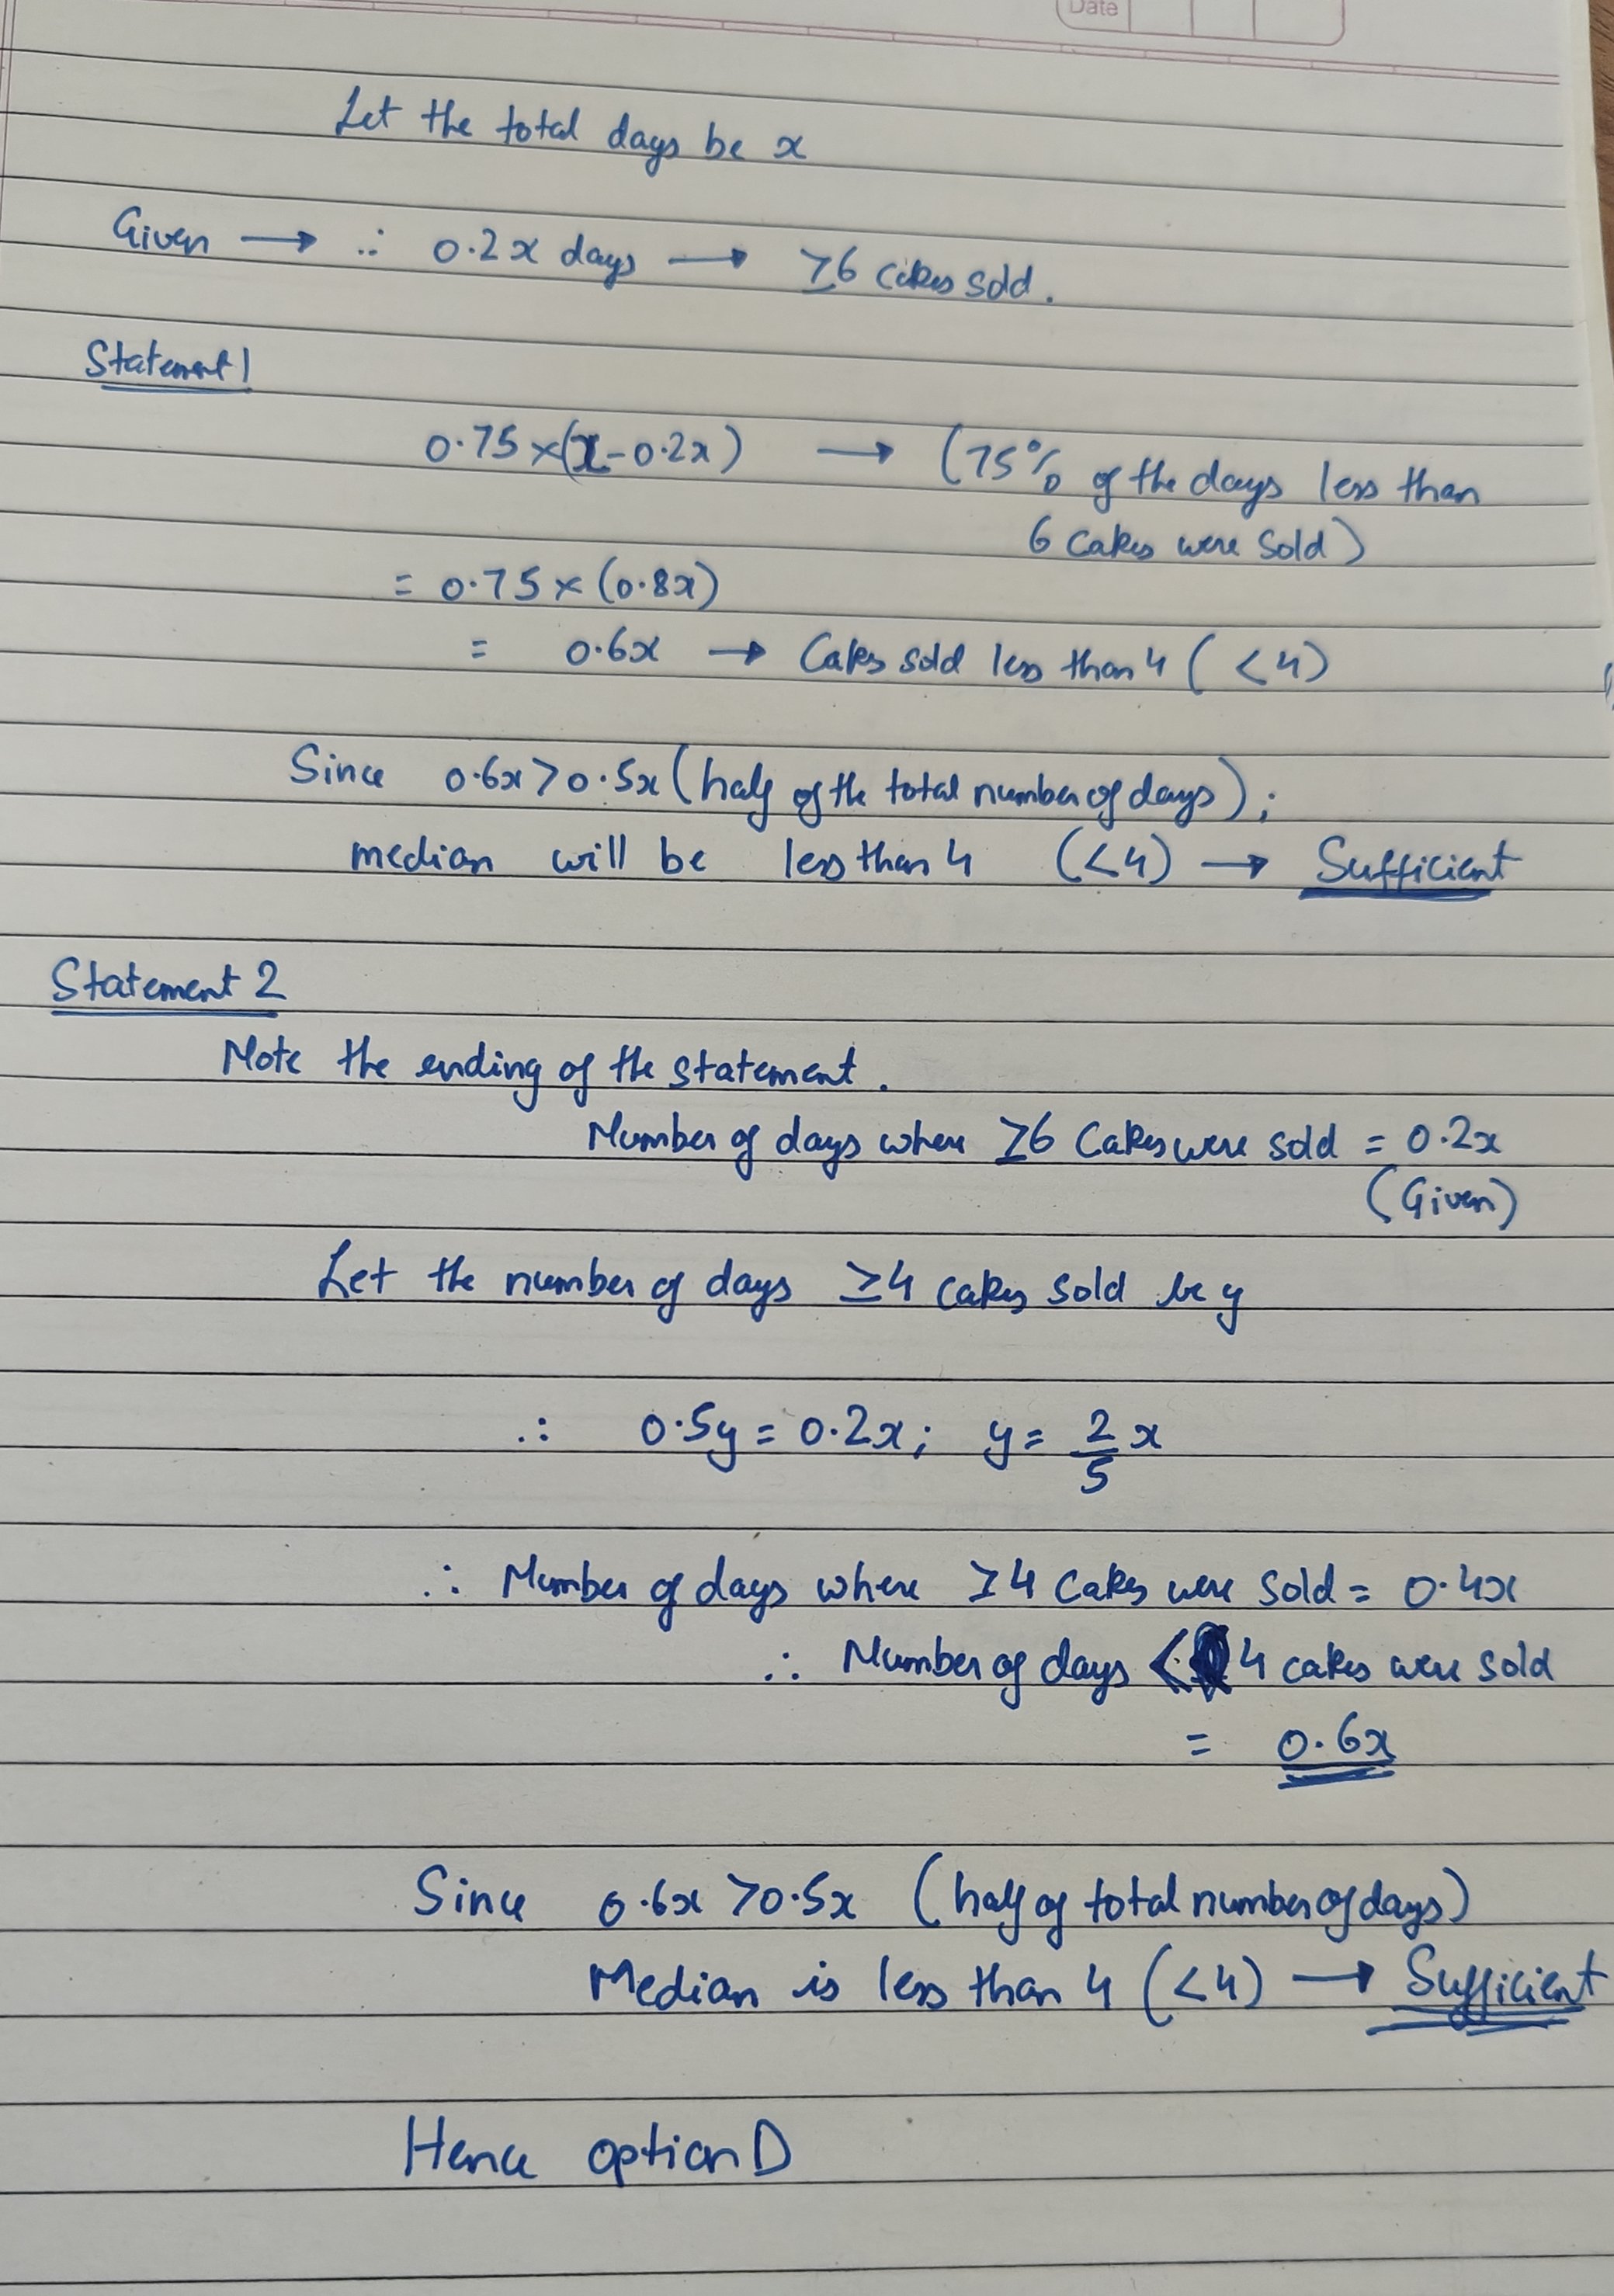 Date
Let the total days be x
Given → ∴ 0.2x days → ≥6 cakes sold.
Statement 1
0.75×(x-0.2x) → (75% of the days less than
6 cakes were sold)
= 0.75×(0.8x)
= 0.6x → Cakes sold less than 4 (<4)
Since 0.6x>0.5x (half of the total number of days);
median will be less than 4 (<4) → Sufficient
Statement 2
Note the ending of the statement.
Number of days where ≥6 Cakes were sold = 0.2x
(Given)
Let the number of days ≥4 cakes sold be y
∴ 0.5y = 0.2x; y = 2/5 x
∴ Number of days where ≥4 cakes were sold = 0.4x
∴ Number of days < 4 cakes were sold
= 0.6x
Since 0.6x >0.5x (half of total number of days)
Median is less than 4 (<4) → Sufficient
Hence option D